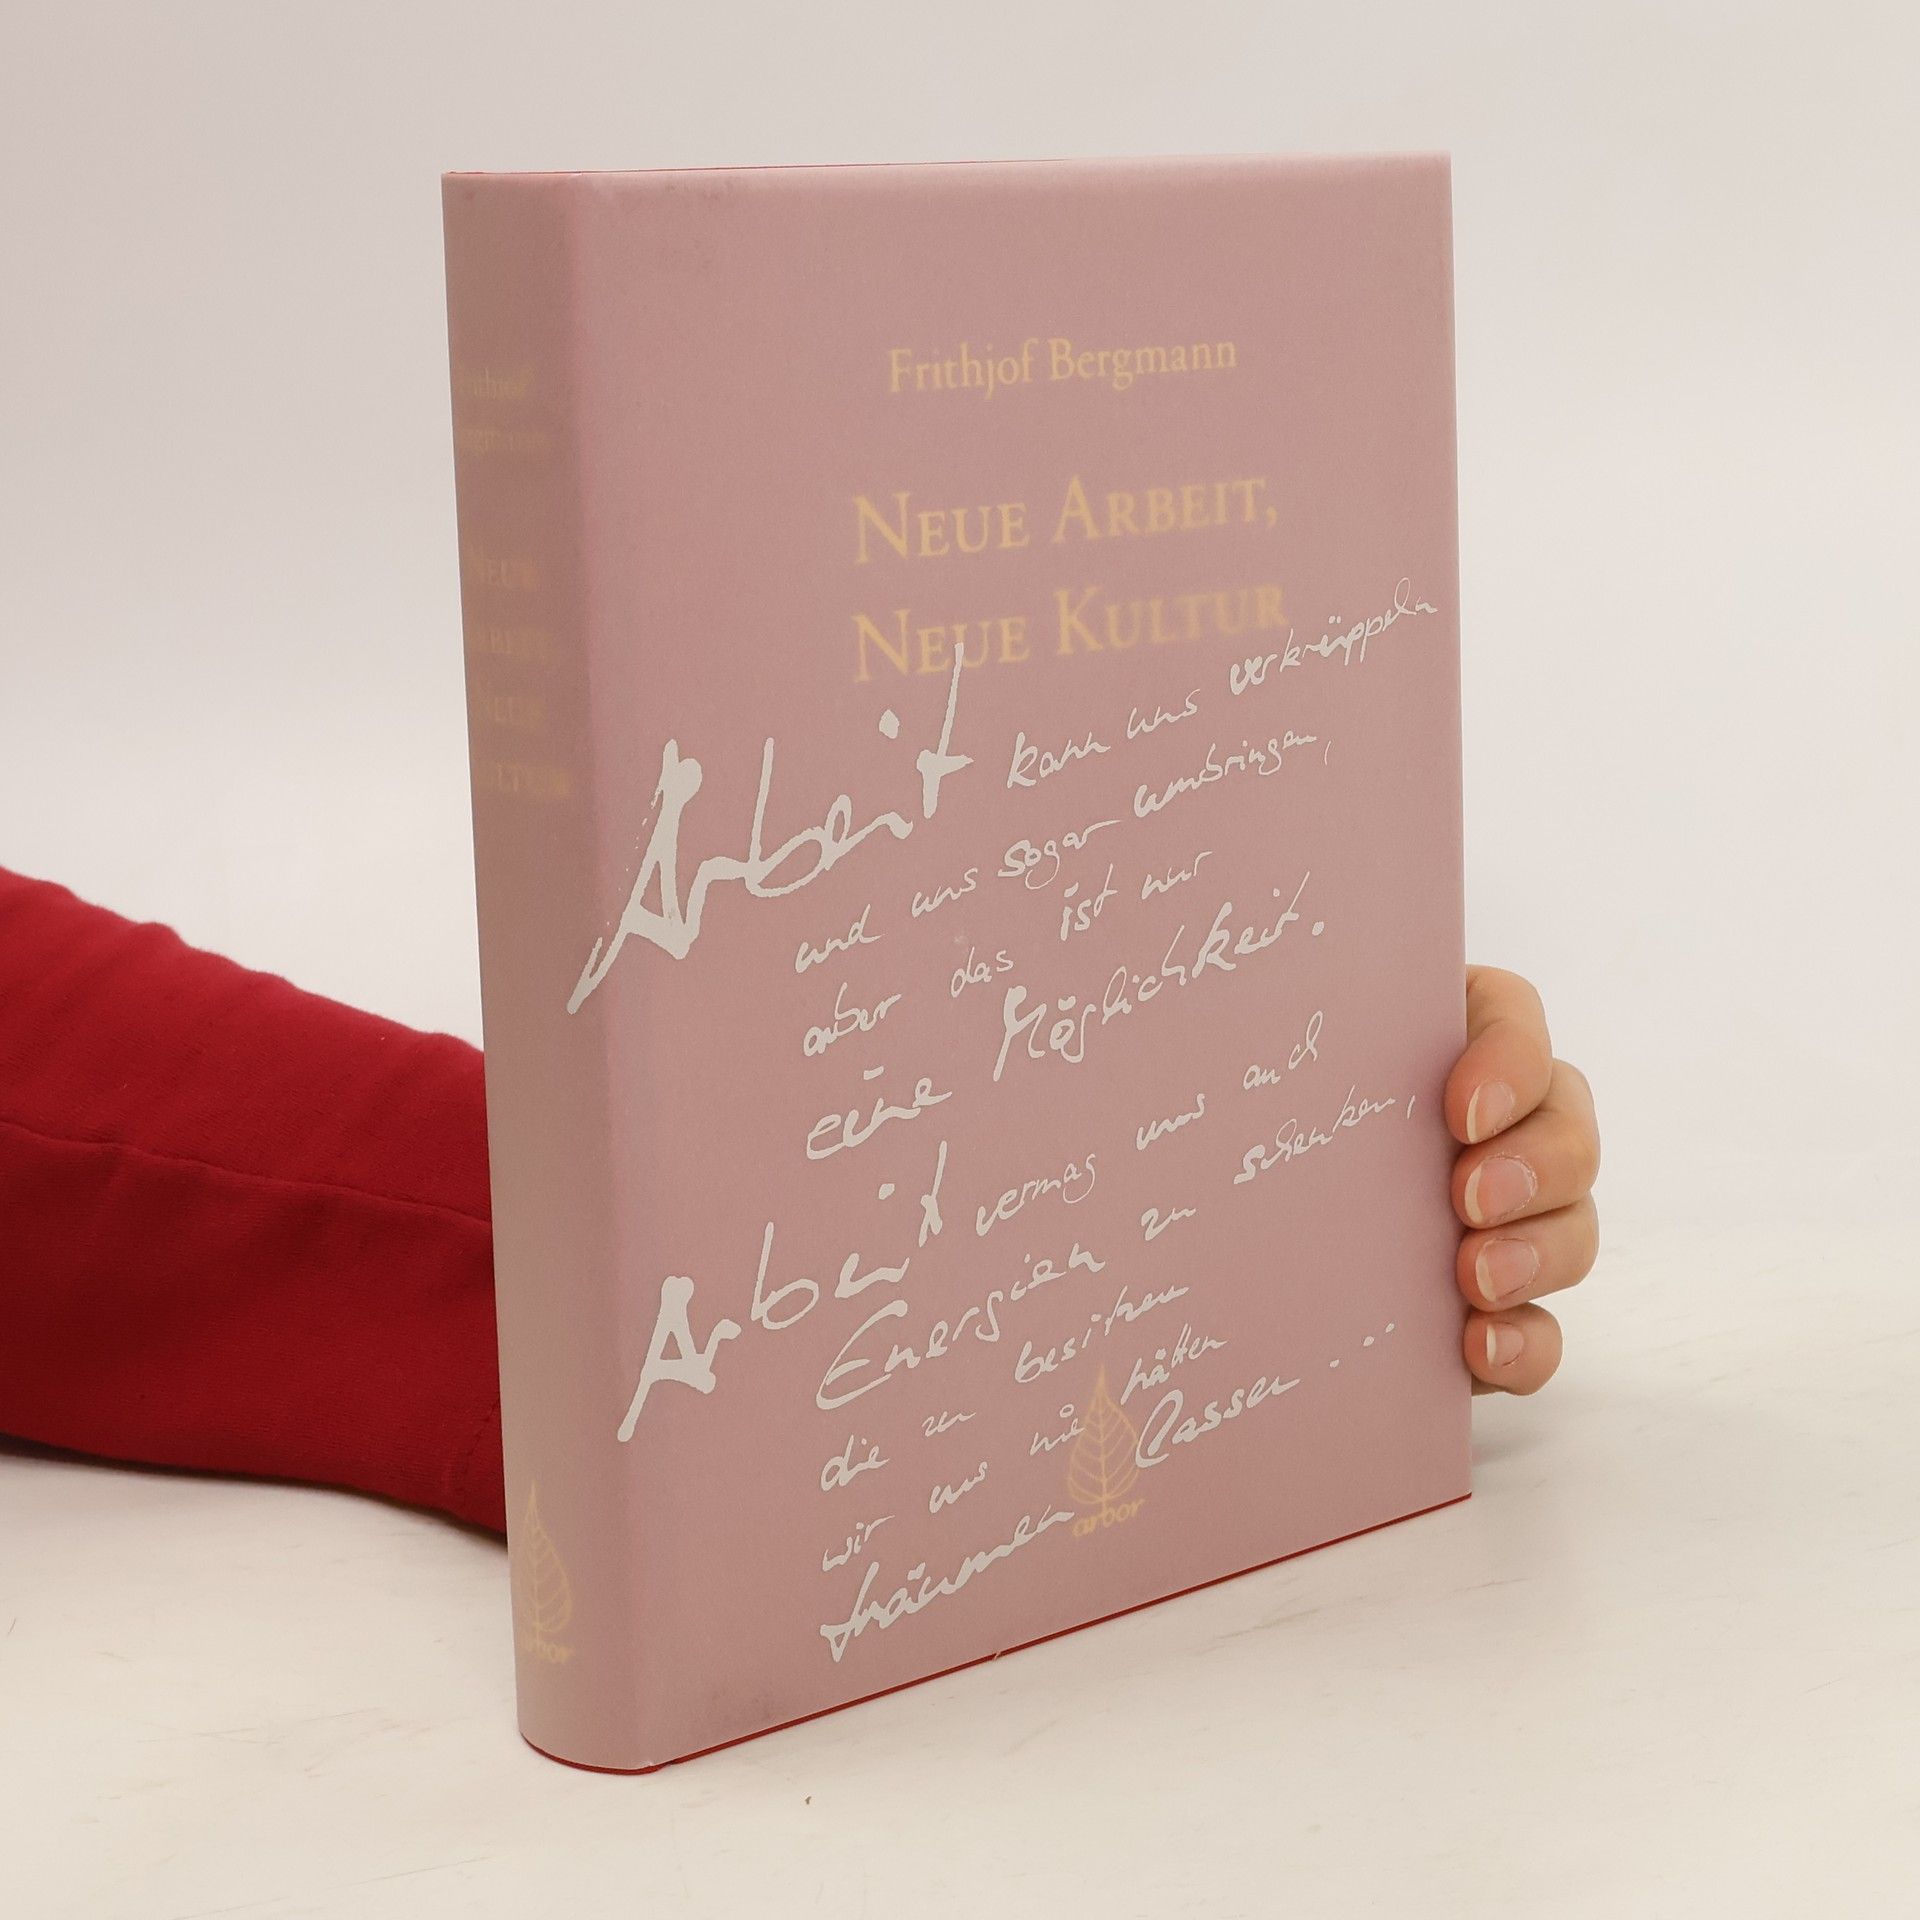 Frithjof Bergmann
NEUE ARBEIT,
NEUE KULTUR
Arbeit kann uns verkrüppeln
und uns sogar umbringen,
aber das ist nur
eine Möglichkeit.
Arbeit vermag uns auch
Energien zu schenken,
die zu besitzen
wir uns nie hätten
träumen lassen ...
arbor
Frithjof
Bergmann
NEUE
ARBEIT,
NEUE
KULTUR
arbor